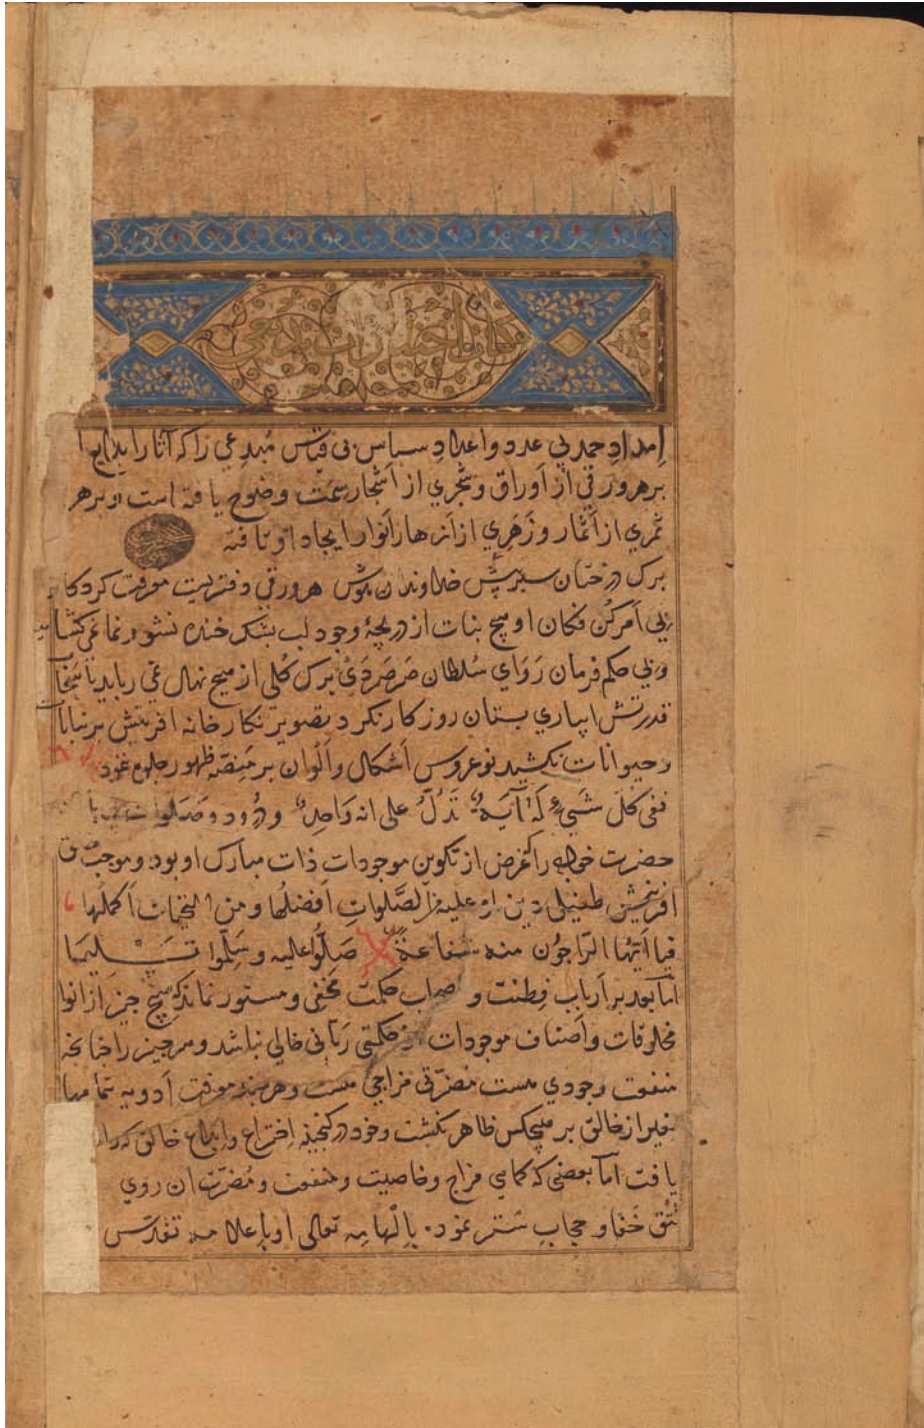 امداد حمد بی عدد و اعداد سپاس بی قیاس مبدعی را که آثار ابداع او
بر هر ورقی از أوراق و شجری از أشجار سمت وضوح یافته است و بر هر
ثمری از أثمار و زَهَرِی از ازهار أنوار ایجاد او تافته
برک درختان سبز پیش خداوند هوش هر ورقی دفتریست معرفت کردکار
بی أمر کن فکان او هیچ بنات از دریچهٔ وجود لب بشکر خنده نشو و نما نمی کشاید
و بی حکم فرمان رَوَای سُلطان صَرصَر دَی برک کُلی از هیچ نهال نمی رباید تا
قدرتش ابیاری بستان روزکار نکرد بتصویر نکارخانه افرینش بر نباتات
و حیوانات نکشید نو عروس أشکال و ألوان بر مَنِصّه ظهور جلوه ننمود
ففی کل شَیءٍ لَهُ آیَةٌ تَدُلُّ علی انه وَاحِدٌ و درود و صَلَوات
حضرت خواجه را که غرض از تکوین موجودات ذات مبارک او بود و موجب
افرینش طفیلی علیه من الصَّلواتِ أفضلُها و من التحیات أکملُها
فیا أیّها الرّاجُون منه شفاعةً صَلُّوا علیه و سَلِّموا تسلیما
أما بعد بر أرباب فِطنت و اصحاب حکمت مخفی و مستور نماند که هیچ چیز از انواع
مخلوقات و أصناف موجودات از حکمتی رَبّانی خالی نباشد و هر چیز را چنانچه
منفعت وجودی هست مضرّتی مزاجی هست و هر چند معرفت أدویه بتمامها
بغیر از خالق بر هیچکس ظاهر نکشت و خود در کنجینه اِختراع و اِبداع خالق که
یافت امّا بعضی که کماهی مزاج و خاصیت و منفعت و مُضرّت ان روی
تُتُق خَفا و حجابِ سَتر نمود بإلهامِه تعالی او بإعلامه تقدّس